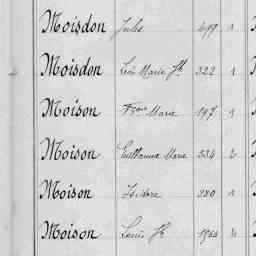 Moisdon Jules 499 1
Moisdon Léon Marie Jh 322 1
Moison Fçois Marie 197 1
Moison Guillaume Marie 554 2
Moison Isidore 280 1
Moison Louis Jh